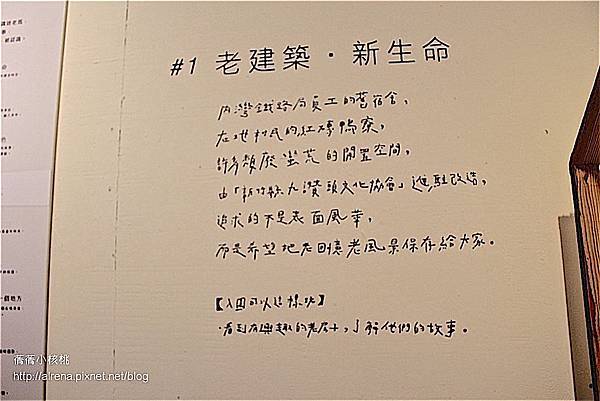 #1 老建築・新生命
內灣鐵路局員工的舊宿舍，
在地村民的紅磚鴨寮，
許多頹廢蠻荒的閒置空間，
由「新竹縣九讚頭文化協會」進駐改造，
追求的不是表面風華，
而是希望地老回憶老風景保存給大家。
【入園可以這樣玩】
・看到有興趣的老房子，了解他們的故事。
一個地方
喬喬小核桃
http://airena.pixnet.net/blog